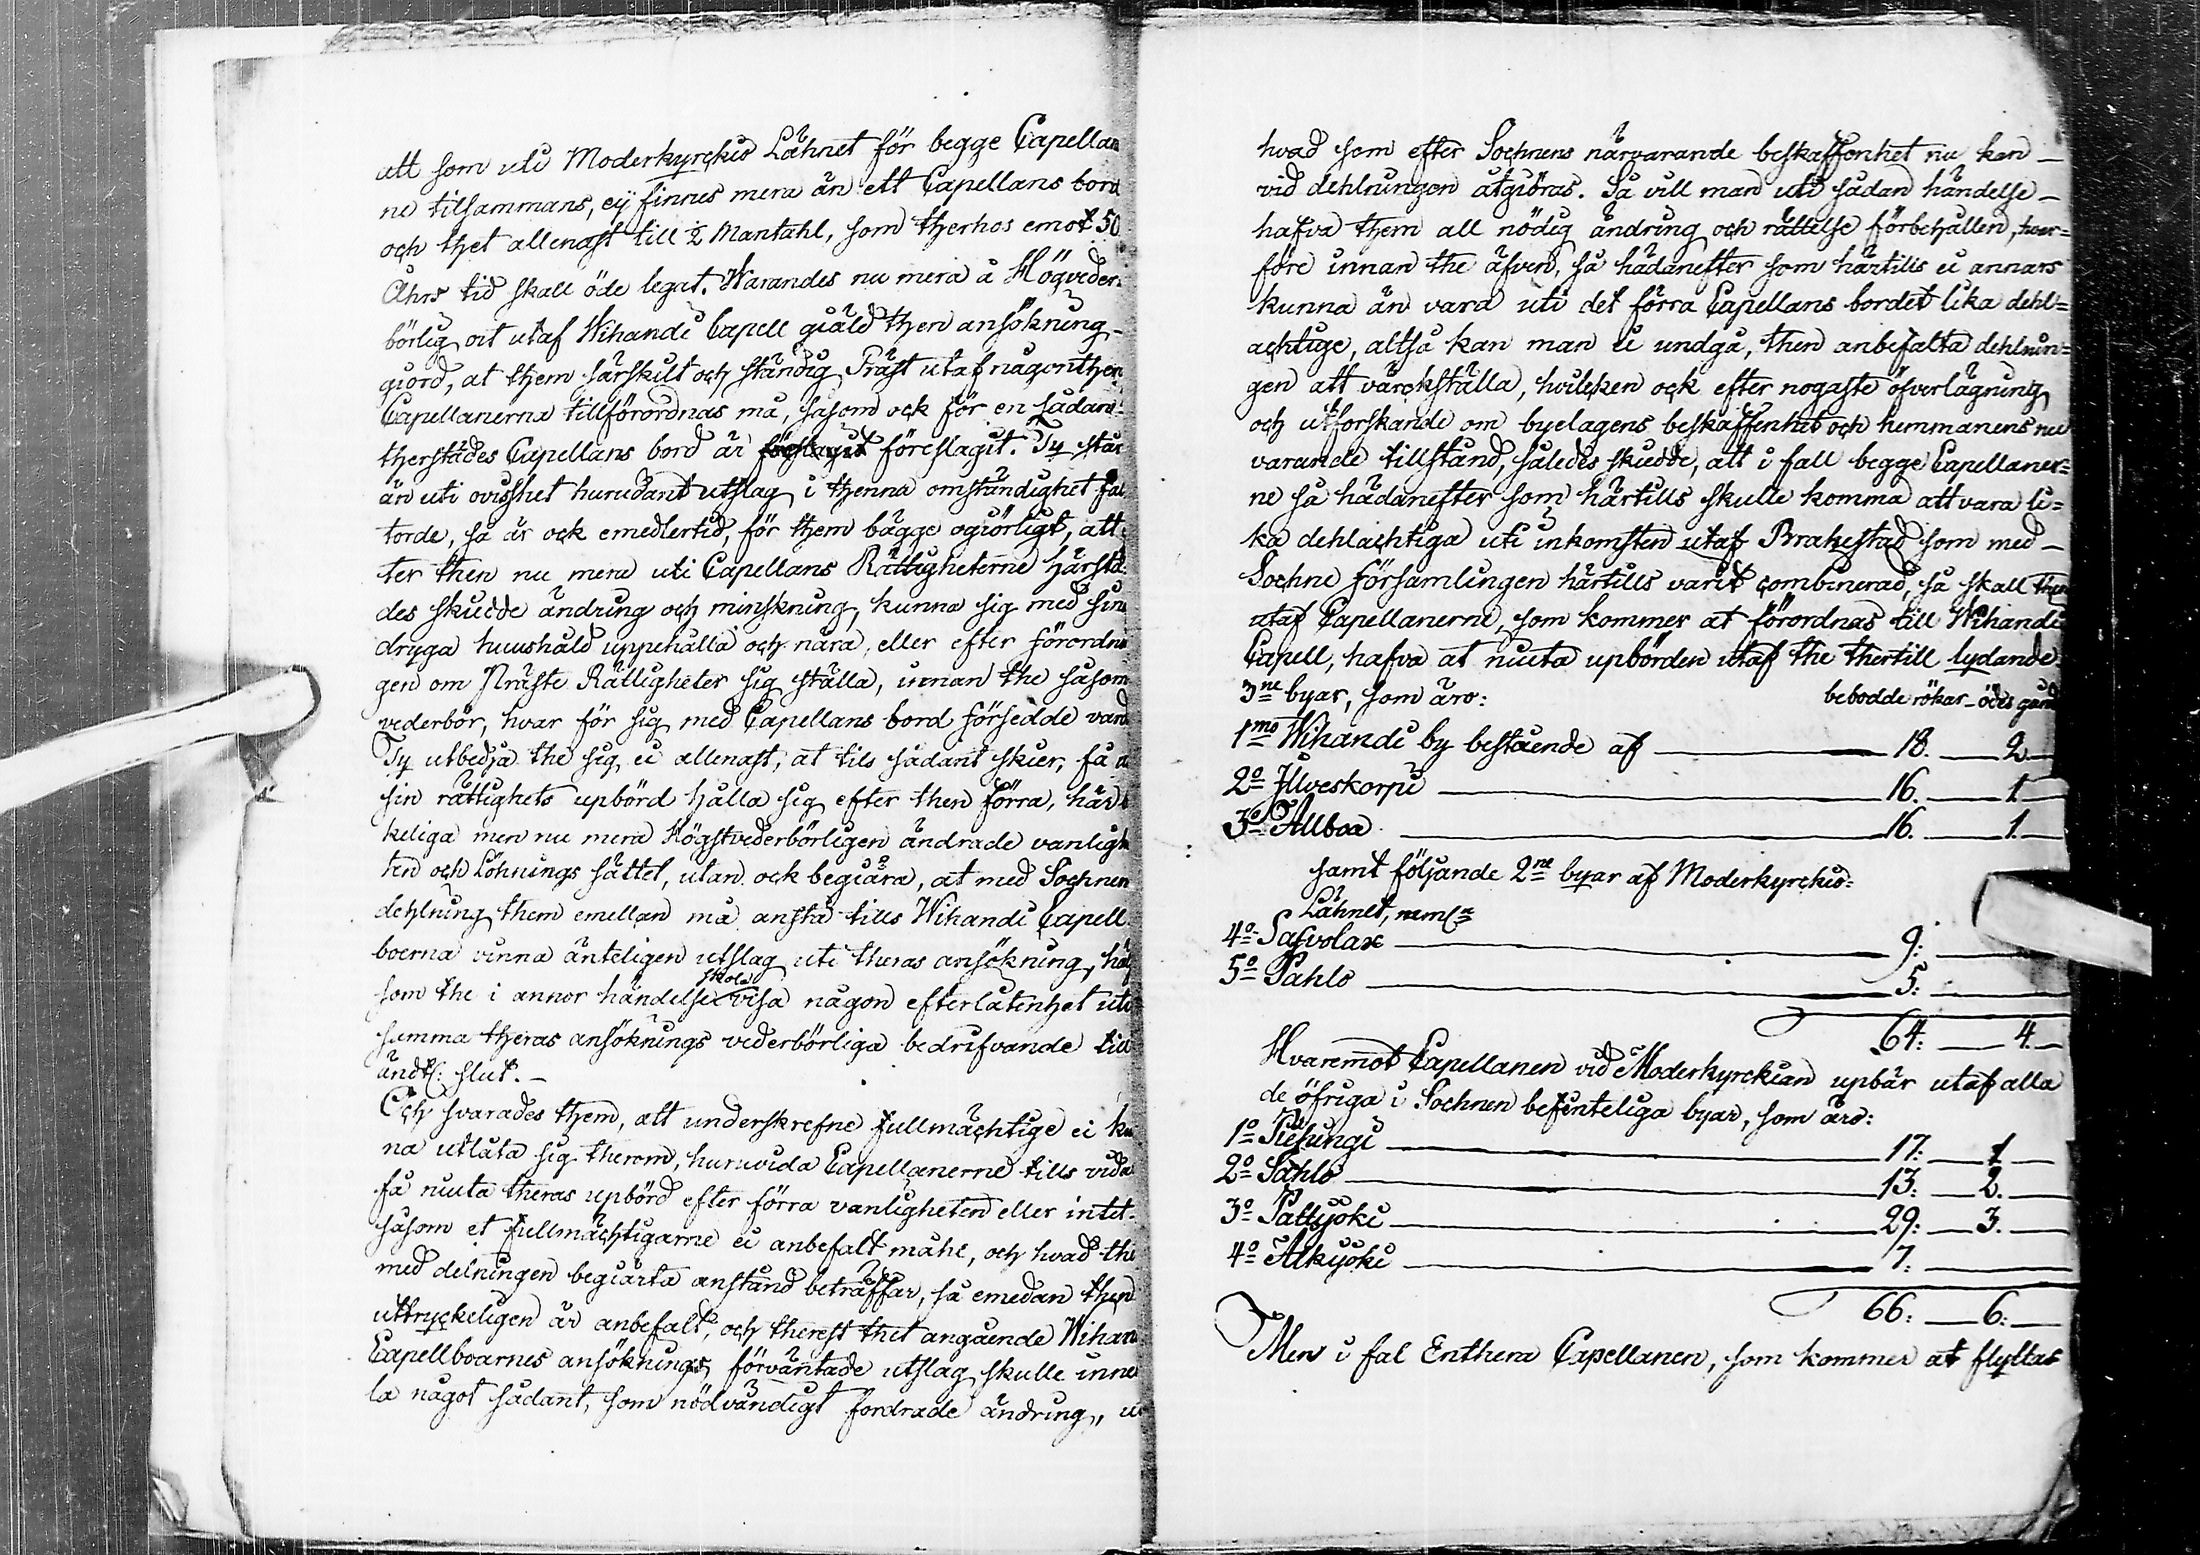 att som uti Moderkyrckio Lähnet för begge Capellan
ne tilsammans, ey finnes mera än ett Capellans bord
och thet allenast till ½ Mantahl, som therhos emot 50
Åhrs tid skall öde legat. Warandes nu mera å Högveder-
börlig ort utaf Wihandi Capell giäld then ansökning
giord, at them särskilt och ständig Präst utaf någonthen
Capellanerna tillförordnas må, såsom ock för en sådan
therstädes Capellans bord är förslagit föreslagit. Ty står
än uti ovisshet hurudant utslag i thenna omständighet fal
torde, så är ock emedlertid, för them bägge ogiörligt, att
ter then nu mera uti Capellans Rättigheterne härstä
des skiedde ändring och minskning, kunna sig med sine
dryga huushåld uppehålla och nära, eller efter förordni
gen om Präste Rättigheter sig ställa, innan the såsom
vederbör, hvar för sig med Capellans bord försedde vard
Ty utbedja the sig ei allenast, at tils sådant skier, få a
sin rättighets upbörd hålla sig efter then förra, här
keliga men nu mera Högstvederbörligen ändrade vanligh
ten och Löhnings sättet, utan ock begiära, at med Sochnen
dehlning them emellan må anstå tills Wihandi Capell
boerna vinna änteligen utslag uti theras ansökning, hälst
som the i annor händelse skola visa någon efterlåtenhet uti
samma theras ansöknings vederbörliga bedrifvande till
ändtl: slut.-
Och svarades them, att underskrefne fullmächtige ei kun
na utlåta sig therom, huruvida Capellanerne tills vida
få niuta theras upbörd efter förra vanligheten eller intet.
såsom et fullmächtigarne ei anbefalt måhl, och hvad the
med delningen begiärta anstånd beträffar, så emedan then
uttryckeligen är anbefalt, och therest thet angående Wihan
Capellboarnes ansöknings förväntade utslag skulle inne
la något sådant, som nödvändigt fordrade ändring,, ut
hvad som efter Sochnens närvarande beskaffenhet nu kan —
vid dehlningen åtgiöras. Så vill man uti sådan händelse —
hafva them all nödig ändring och rättelse förbehållen, hvar-
före innan the äfven, så hädanefter som härtills ei annars
kunna än vara uti det förra Capellans bordet lika dehl=
achtige, altså kan man ei undgå, then anbefalta dehlnin=
gen att värckställa, hvilcken ock efter nogaste öfverlägning
och utforskande om byelagens beskaffenhet och hemmanens nu
varande tillstånd, således skiedde, att i fall begge Capellaner=
ne så hädanefter som härtills skulle komma att vara li=
ka dehlachtiga uti inkomsten utaf Brahestad som med —
Sochne församlingen härtills varit combinerad, så skall then
utaf Capellanerne, som kommer at förordnas till Wihandi
Capell, hafva at niuta upbörden utaf the thertill lydande
3ne byar, som äro: bebodde rökar — ödes gärd
1mo Wihandi by bestående af — 18. — 2 —
2o Ilveskorpi — 16. — 1 —
3o Allboa — 16. — 1. —
samt följande 2ne byar af Moderkyrckio=
Lähnet, neml:n
4o Safvolax — 9: —
5o Pahlo — 5: —
64: — 4. —
Hvaremot Capellanen vid Moderkyrckian upbär utaf alla
de öfriga i Sochnen befinteliga byar, som äro:
1o Piehingi — 17: — 1 —
2o Sahlo — 13: — 2. —
3o Pattijoki — 29: — 3. —
4o Alkijoki — 7: —
66: — 6: —
Men i fal Enthera Capellanen, som kommer at flyttas